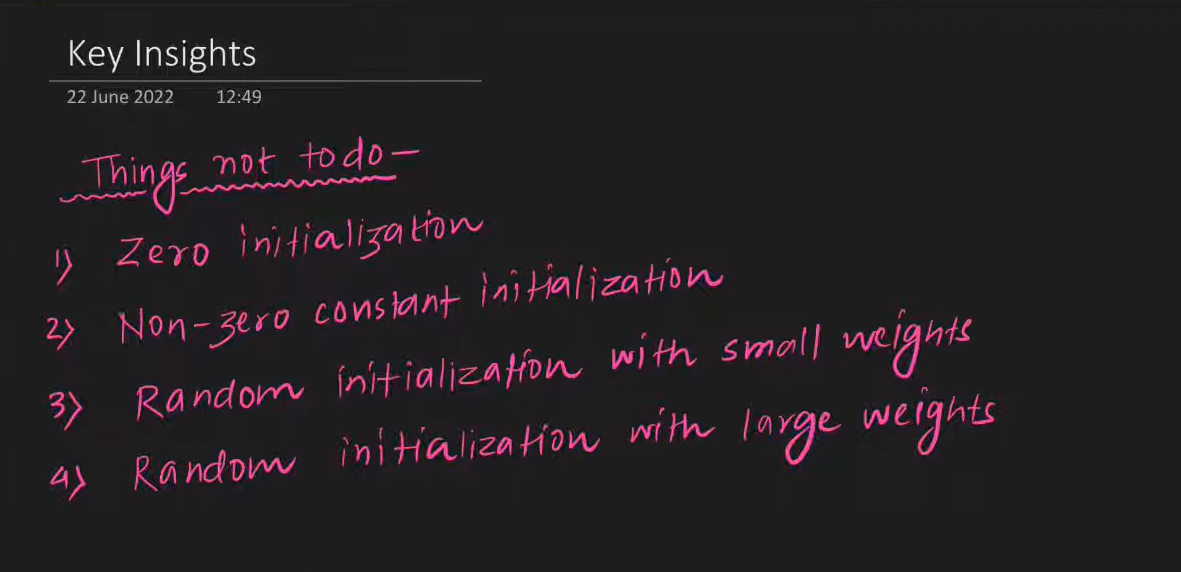 Key Insights
22 June 2022 12:49
Things not to do-
1) Zero initialization
2) Non-zero constant initialization
3) Random initialization with small weights
4) Random initialization with large weights